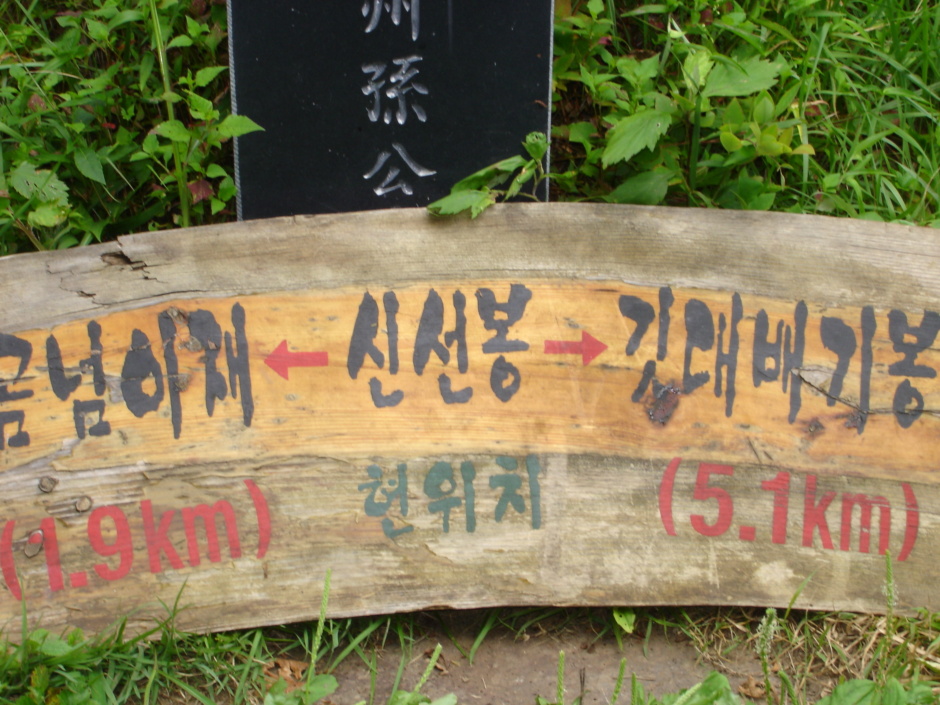 州孫公
곰넘이재 ← 신선봉 → 깃대배기봉
(1.9km) 현위치 (5.1km)